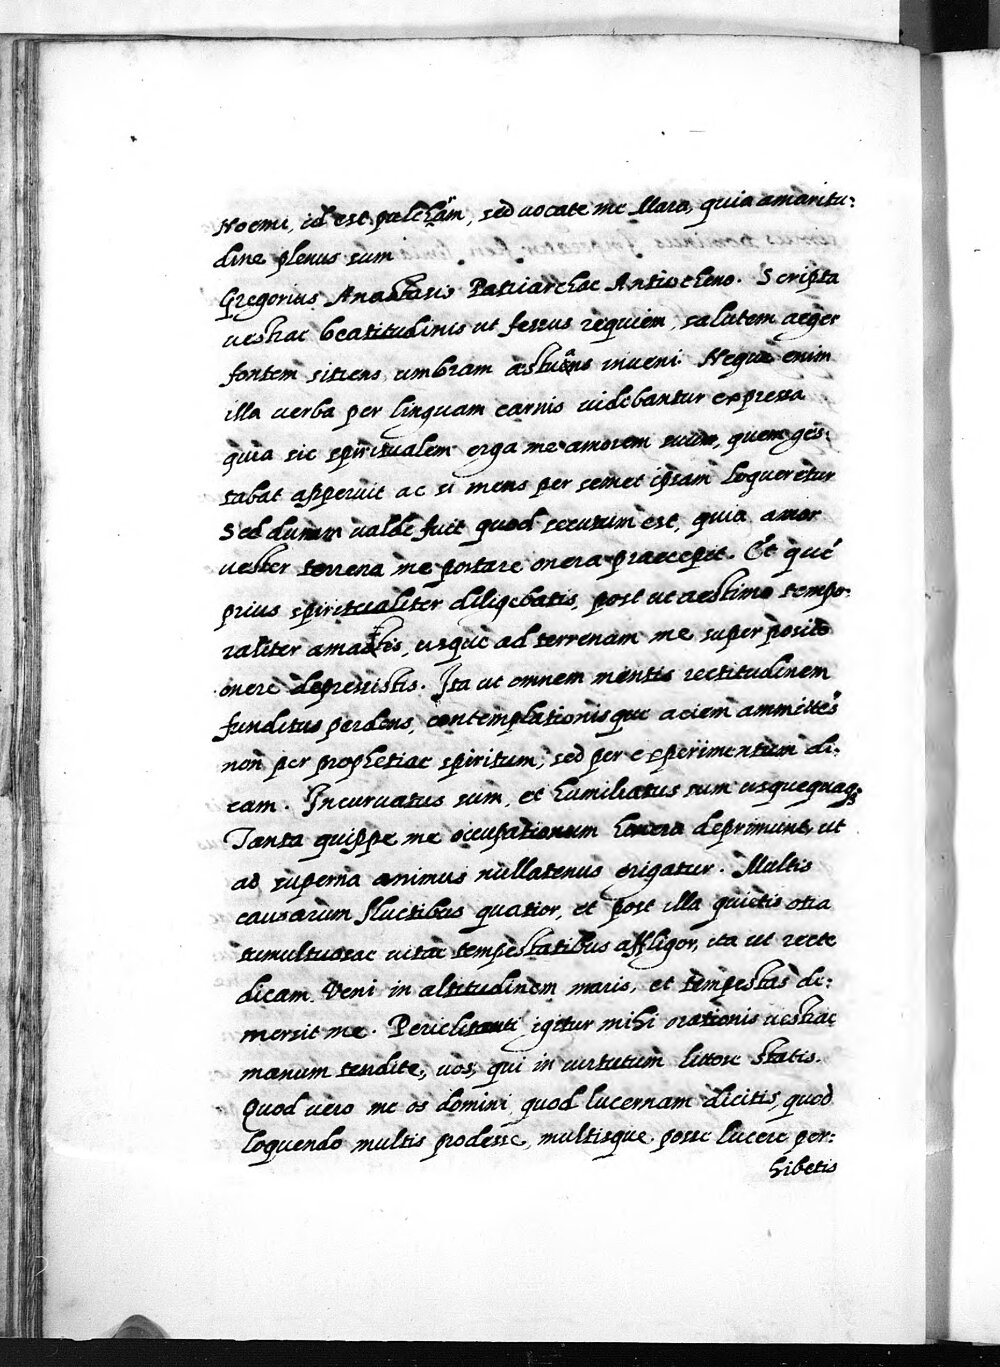 Noemi, id est pulchām, sed uocate me Mara, quia amaritu:
dine plenus sum
Gregorius Anastasio Patriarchae Antiocheno. Scripta
uestrae beatitudinis ut fessus requiem, salutem aeger
fontem sitiens, umbram æstuāns inueni. Neque enim
illa uerba per linguam carnis uidebantur expressa
quia sic spiritualem erga me amorem suum, quem ges:
tabat apperuit ac si mens per semet ipsam loqueretur
Sed durum ualde fuit quod secutum est, quia amor
uester terrena me portare onera praecepit. Et quē
prius spiritualiter diligebatis, post ut aestimo tempo:
raliter amastis, usque ad terrenam me super posito
onere depressistis. Ita ut omnem mentis rectitudinem
funditus perdens, contemplationisque aciem ammittēs
non per prophetiae spiritum, sed per experimentum di:
cam. Incuruatus sum, et humiliatus sum usquequaq;
Tanta quippe me occupationum honera deprimunt, ut
ad superna animus nullatenus erigatur. Multis
causarum fluctibus quatior, et post illa quietis otia
tumultuosae uitae tempestatibus affligor, ita ut recte
dicam. Veni in altitudinem maris, et tempestas de:
mersit me. Periclitanti igitur mihi orationis uestrae
manum tendite, uos, qui in uirtutum littore statis.
Quod uero me os domini quod lucernam dicitis, quod
loquendo multis prodesse, multisque posse lucere per:
hibetis